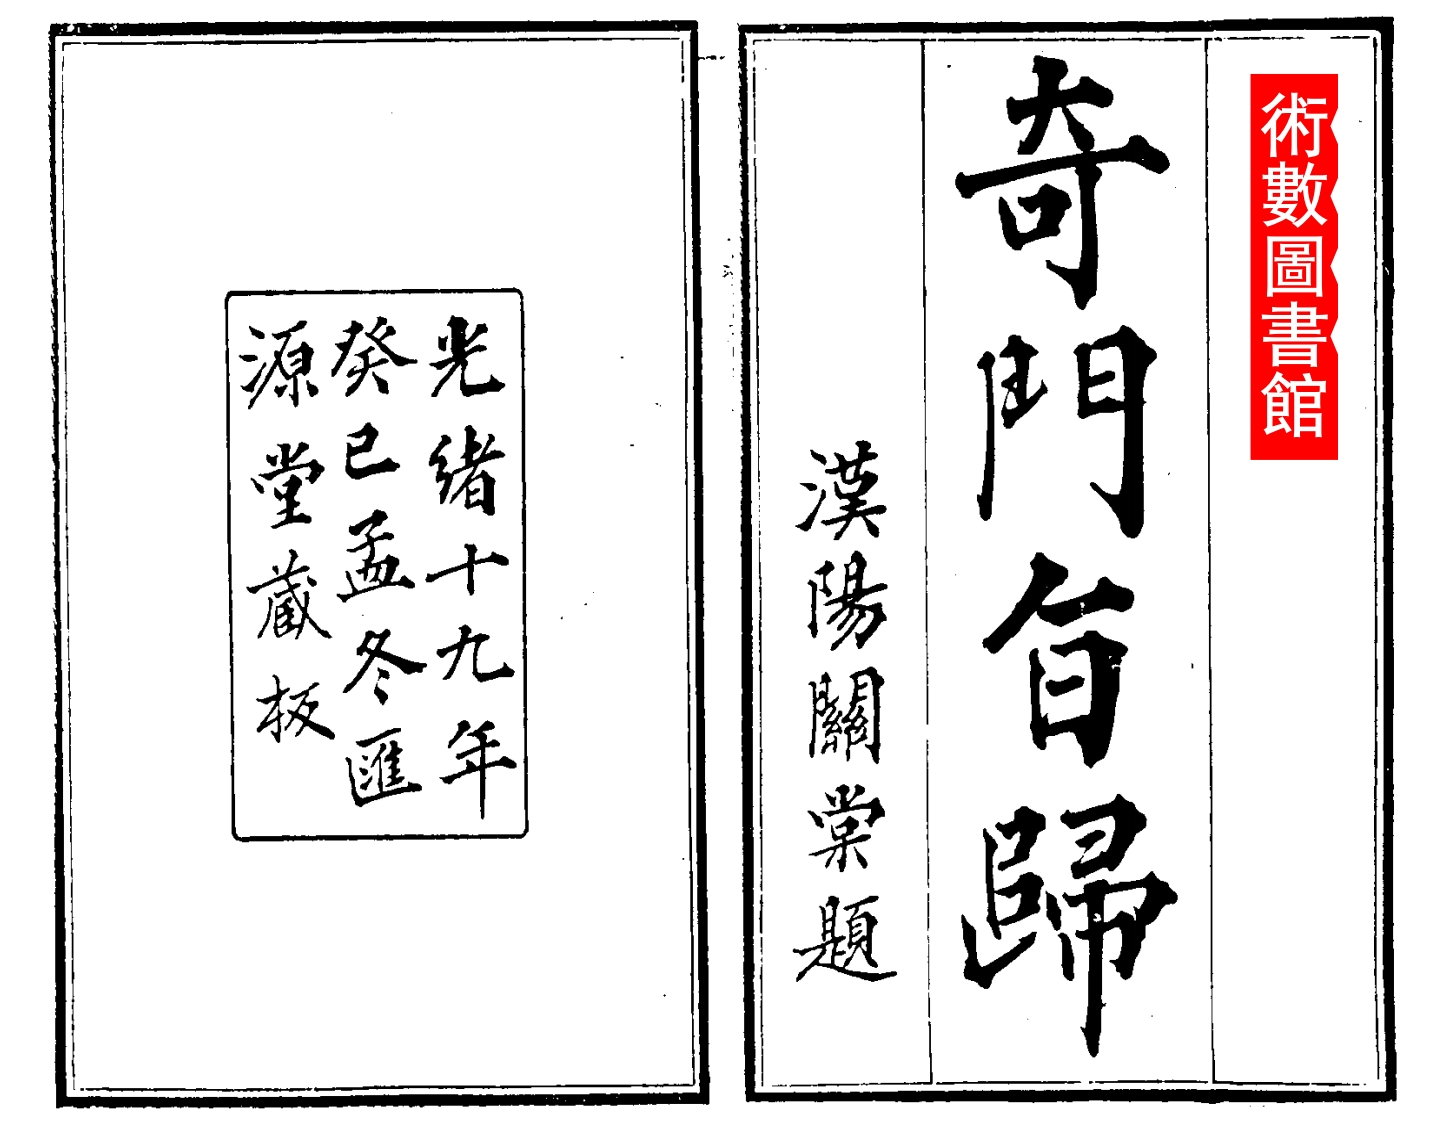 術數圖書館
奇門旨歸
漢陽關棠題
光緒十九年
癸巳孟冬匯
源堂藏板